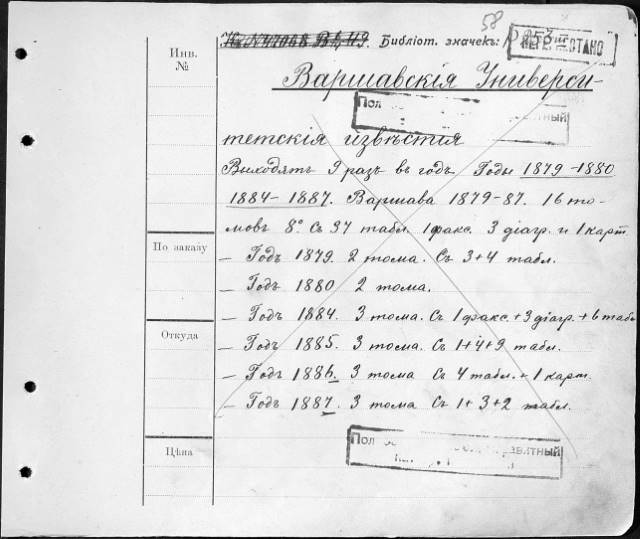 58
Инв. №
Библіот. значекъ:
Варшавскія Универси-
тетскія извѣстія
Выходятъ 9 разъ въ годъ. Годы 1879-1880
1884-1887. Варшава 1879-87. 16 то-
мовъ 8° Съ 37 табл. 1 факс. 3 діагр. и 1 карт.
По заказу
– Годъ 1879. 2 тома. Съ 3+4 табл.
– Годъ 1880 2 тома.
– Годъ 1884. 3 тома. Съ 1 факс.+3 діагр.+6 табл
Откуда
– Годъ 1885. 3 тома. Съ 1+4+9 табл.
– Годъ 1886. 3 тома Съ 4 табл.+1 карт.
– Годъ 1887. 3 тома Съ 1+3+2 табл.
Цѣна